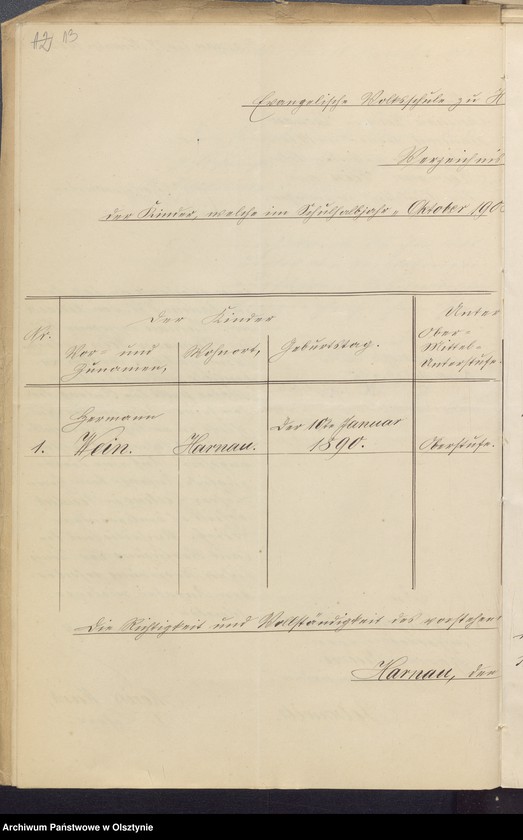 13
Evangelische Volksschule zu H
Verzeichnis
der Kinder, welche im Schulhalbjahr Oktober 190
Nr.
Der Kinder
Vor- und
Zunamen,
Wohnort,
Geburtstag.
Unter
Ober-
Mittel-
Unterstufe.
1.
Hermann
Wein.
Harnau.
Der 10te Januar
1890.
Oberstufe.
Die Richtigkeit und Vollständigkeit des vorstehen
Harnau, den
Archiwum Państwowe w Olsztynie